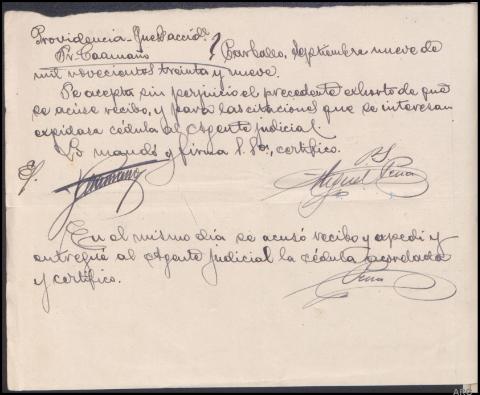 Providencia - Juez accidl.
Sr. Caamaño } Carballo, Septiembre nueve de
mil novecientos treinta y nueve.
Se acepta sin perjuicio el precedente exhorto de que
se acúse recibo, y para las citaciones que se interesan
expidase cédula al Agente judicial.
Lo mandó y firma S. Sª, certifico.
Miguel Pena
En el mismo dia se acusó recibo y expedi y
entregué al Agente judicial la cédula acordada
y certifico.
Pena